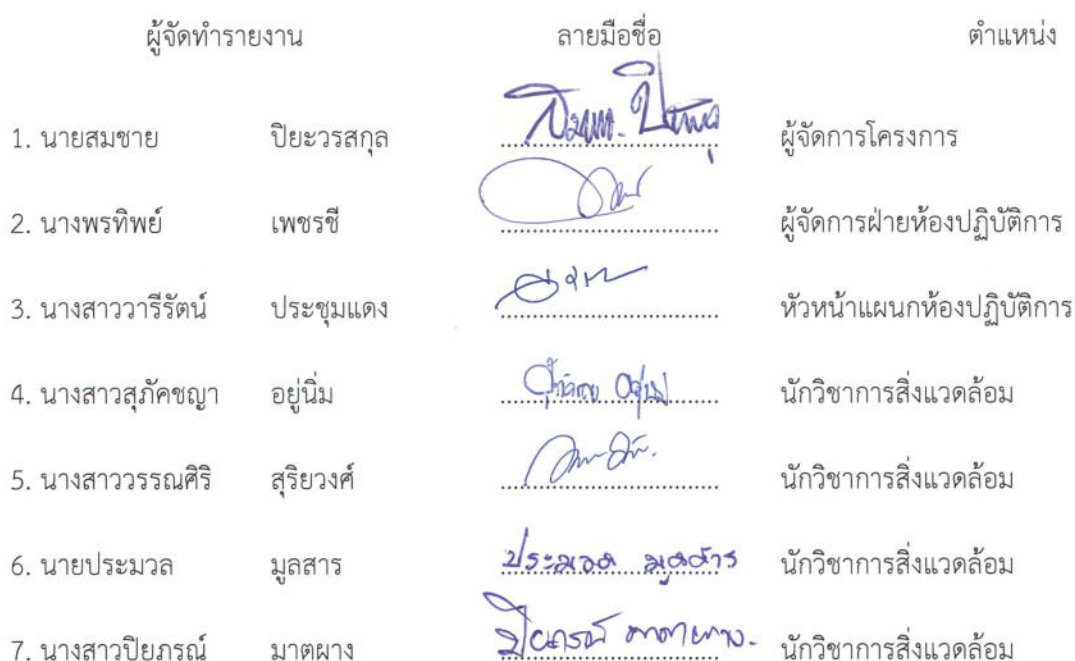 ผู้จัดทำรายงาน ลายมือชื่อ ตำแหน่ง
1. นายสมชาย ปิยะวรสกุล ผู้จัดการโครงการ
2. นางพรทิพย์ เพชรชี ผู้จัดการฝ่ายห้องปฏิบัติการ
3. นางสาววารีรัตน์ ประชุมแดง หัวหน้าแผนกห้องปฏิบัติการ
4. นางสาวสุภัคชญา อยู่นิ่ม นักวิชาการสิ่งแวดล้อม
5. นางสาววรรณศิริ สุริยวงศ์ นักวิชาการสิ่งแวดล้อม
6. นายประมวล มูลสาร ประมวล มูลสาร นักวิชาการสิ่งแวดล้อม
7. นางสาวปิยภรณ์ มาตผาง นักวิชาการสิ่งแวดล้อม